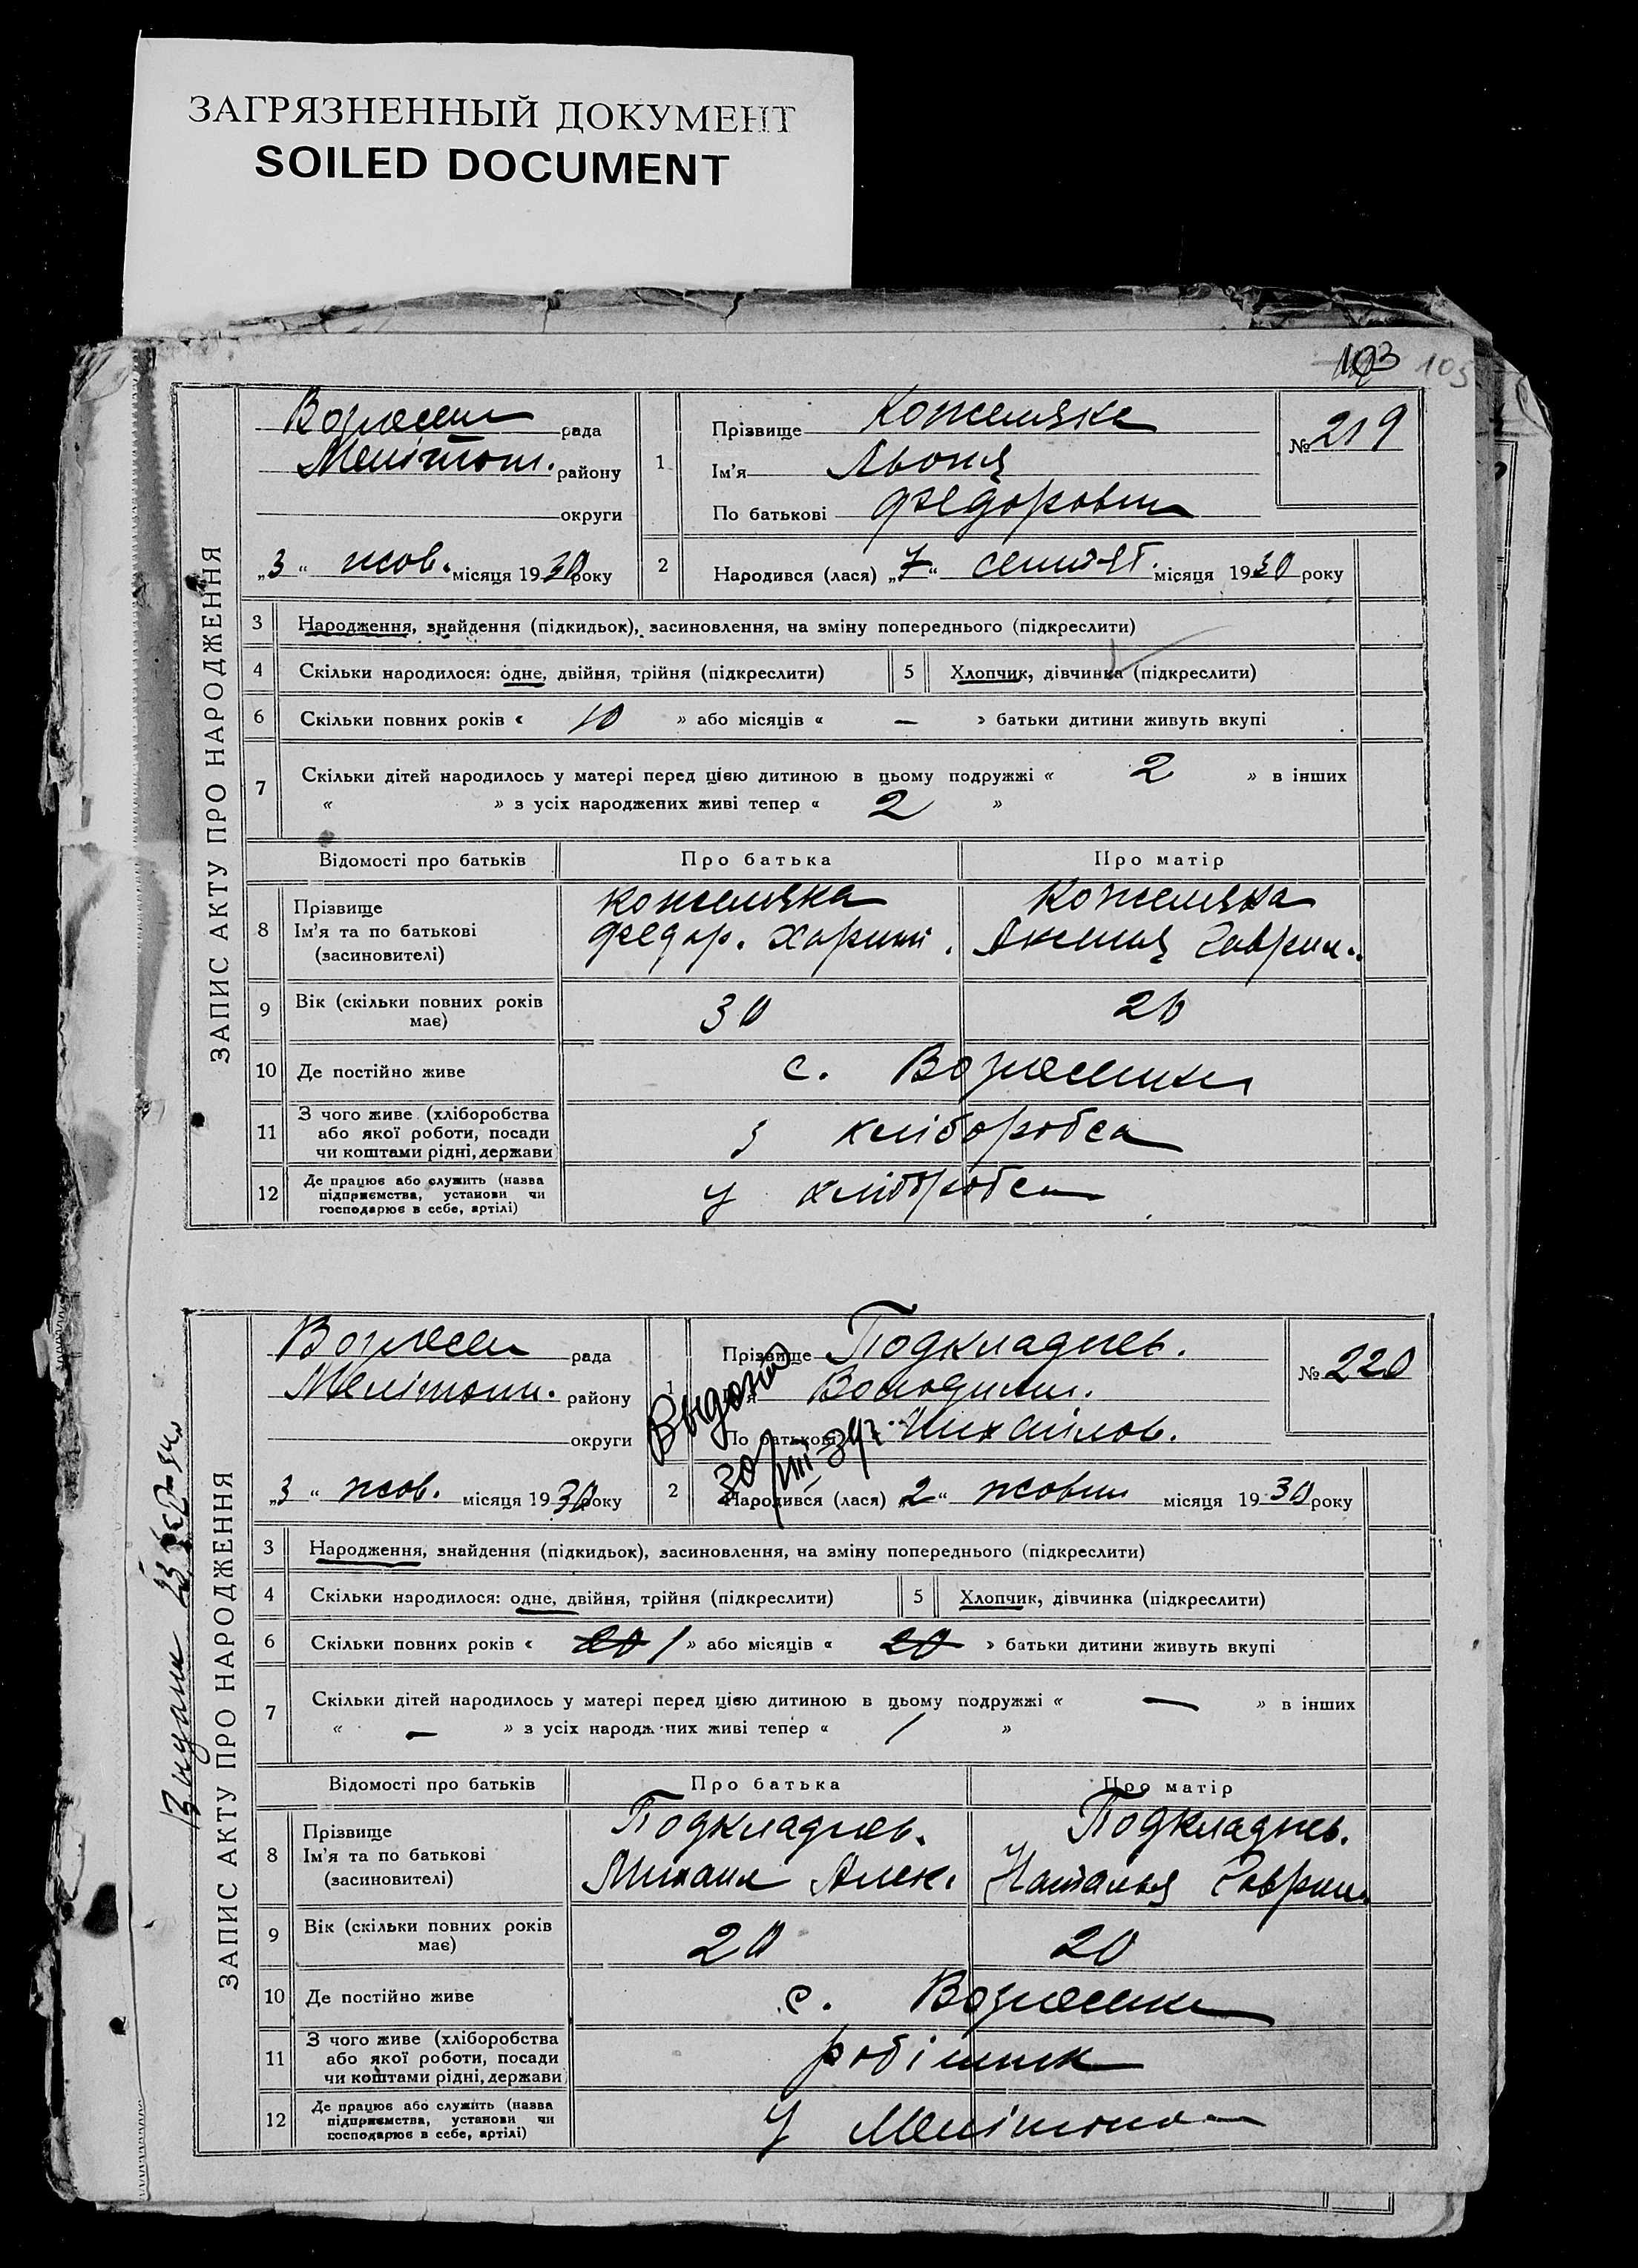 ЗАГРЯЗНЕННЫЙ ДОКУМЕНТ
SOILED DOCUMENT
103 103
ЗАПИС АКТУ ПРО НАРОДЖЕННЯ
Вознесен рада
Мелітоп. району
округи
„3“ жов. місяця 1930 року
1 Прізвище Кожемяка
Ім'я Льоня
По батькові Федорович
№ 219
2 Народився (лася) „7“ місяця 1930 року
3 Народження, знайдення (підкидьок), засиновлення, на зміну попереднього (підкреслити)
4 Скільки народилося: одне, двійня, трійня (підкреслити) 5 Хлопчик, дівчинка (підкреслити)
6 Скільки повних років « 10 » або місяців « — » батьки дитини живуть вкупі
7 Скільки дітей народилось у матері перед цією дитиною в цьому подружжі « 2 » в інших
« » з усіх народжених живі тепер « 2 »
Відомості про батьків Про батька Про матір
8 Прізвище
Ім'я та по батькові
(засиновителі)
Кожемяка
Федор. Харит.
Кожемяка
Аксинья Гаврил.
9 Вік (скільки повних років
має)
30 26
10 Де постійно живе с. Вознесенка
11 З чого живе (хліборобства
або якої роботи, посади
чи коштами рідні, держави
з хліборобса
12 Де працює або служить (назва
підприємства, установи чи
господарює в себе, артілі)
у хліборобса
ЗАПИС АКТУ ПРО НАРОДЖЕННЯ
Вознесен рада
Мелітоп. району
округи
„3“ жов. місяця 1930 року
1 Прізвище Подкладнев.
Володимир.
По батькові Михайлов.
№ 220
2 Народився (лася) „2“ жовтн місяця 1930 року
3 Народження, знайдення (підкидьок), засиновлення, на зміну попереднього (підкреслити)
4 Скільки народилося: одне, двійня, трійня (підкреслити) 5 Хлопчик, дівчинка (підкреслити)
6 Скільки повних років « 20 1 » або місяців « 20 » батьки дитини живуть вкупі
7 Скільки дітей народилось у матері перед цією дитиною в цьому подружжі « — » в інших
« — » з усіх народжених живі тепер « 1 »
Відомості про батьків Про батька Про матір
8 Прізвище
Ім'я та по батькові
(засиновителі)
Подкладнев.
Михаил Алек.
Подкладнев.
Наталья Гаврил.
9 Вік (скільки повних років
має)
20 20
10 Де постійно живе с. Вознесенка
11 З чого живе (хліборобства
або якої роботи, посади
чи коштами рідні, держави
робітник
12 Де працює або служить (назва
підприємства, установи чи
господарює в себе, артілі)
у Мелітополі